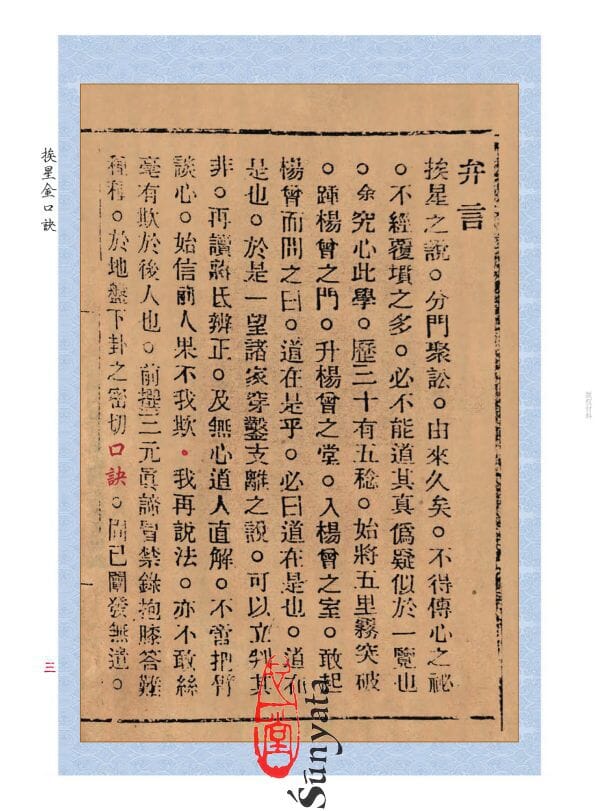 弁言
挨星之說。分門聚訟。由來久矣。不得傳心之祕
。不經覆墳之多。必不能道其真僞疑似於一覽也
。余究心此學。歷三十有五稔。始將五里霧突破
。踵楊曾之門。升楊曾之堂。入楊曾之室。敢起
楊曾而問之曰。道在是乎。必曰道在是也。道在
是也。於是一望諸家穿鑿支離之說。可以立判其
非。再讀蔣氏辨正。及無心道人直解。不啻把臂
談心。始信前人果不我欺。我再說法。亦不敢絲
毫有欺於後人也。前撰三元眞諦冒禁錄抱膝答難
種種。於地盤下卦之密切口訣。間已闡發無遺。
挨星金口訣
三
心一堂
Śūnyata